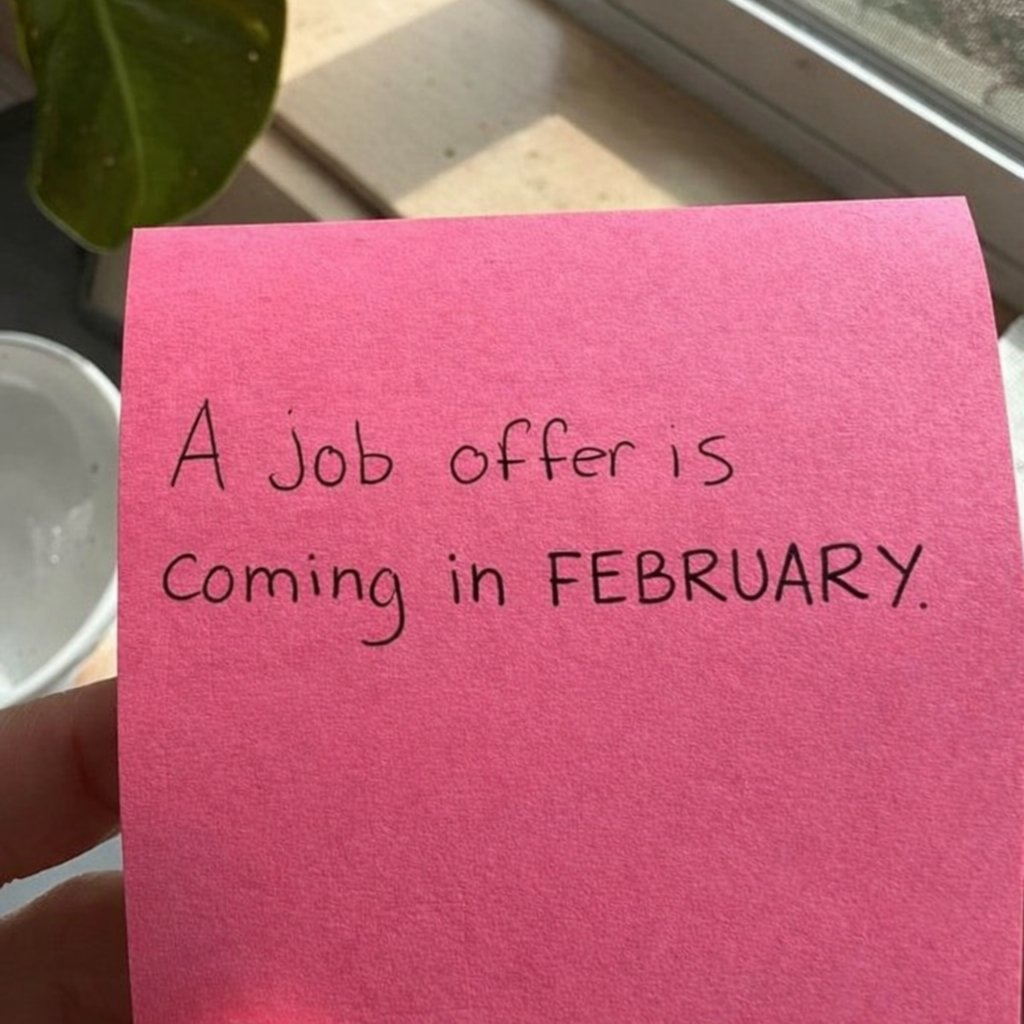 A job offer is
coming in FEBRUARY.